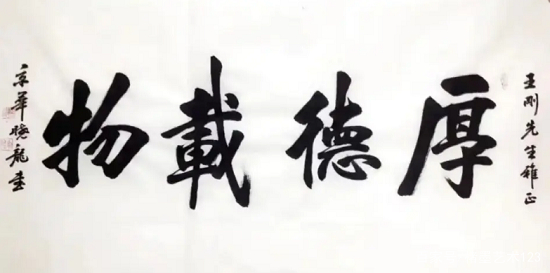 王刚先生雅正
厚德載物
京華曉龍書